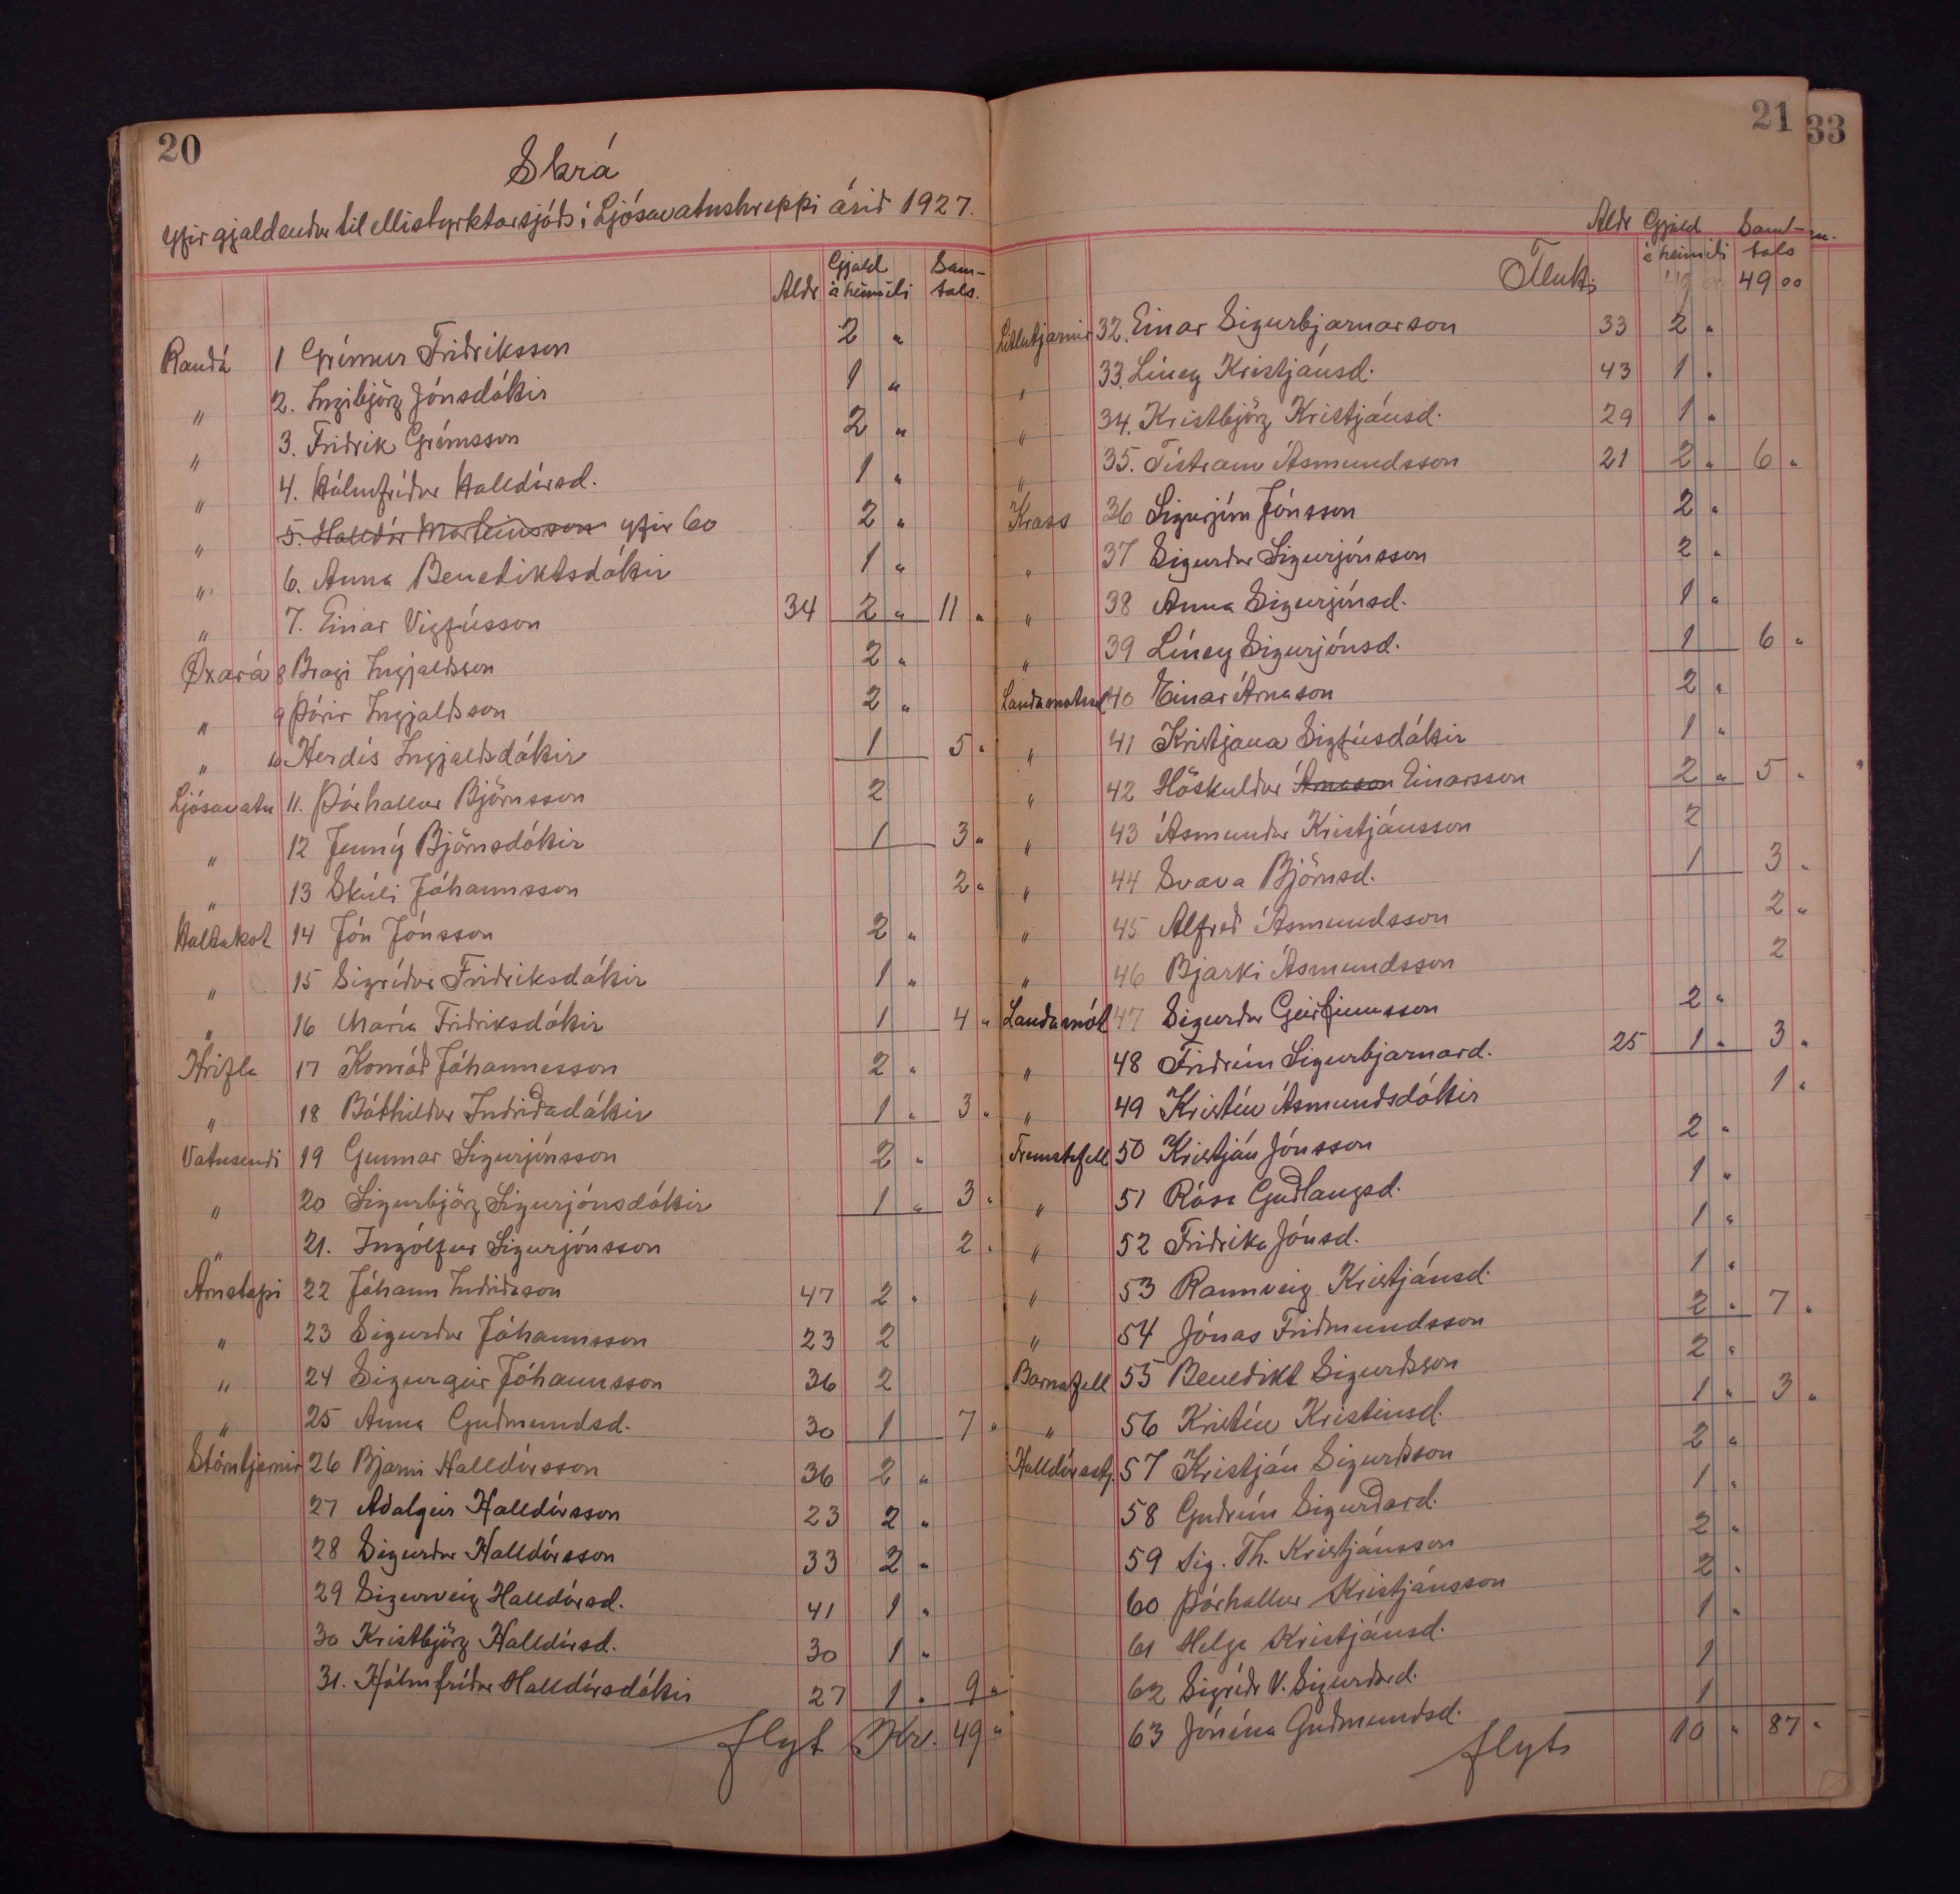 20
Skrá
yfir gjaldendur til ellistyrktarsjóðs í Ljósavatnshreppi árið 1927.
Aldr Gjald á heimili Sam-tals.
Rauðá 1 Grímur Friðriksson 2 "
" 2. Ingibjörg Jónsdóttir 1 "
" 3. Friðrik Grímsson 2 "
" 4. Hólmfríður Halldórsd. 1 "
" 5. Halldór Marteinsson yfir 60 2 "
" 6. Anna Benediktsdóttir 1 "
" 7. Einar Vigfússon 34 2 " 11 "
Öxará 8 Bragi Ingjaldsson 2 "
" 9 Þórir Ingjaldsson 2 "
" 10 Herdís Ingjaldsdóttir 1 5 "
Ljósavatn 11. Þórhallur Björnsson 2
" 12 Jenný Björnsdóttir 1 3 "
" 13 Skúli Jóhannsson 2 "
Holtakot 14 Jón Jónsson 2 "
" 15 Sigríður Friðriksdóttir 1 "
" 16 María Friðriksdóttir 1 4 "
Hrifla 17 Konráð Jóhannesson 2 "
" 18 Bóthildur Indriðadóttir 1 " 3 "
Vatnsendi 19 Gunnar Sigurjónsson 2 "
" 20 Sigurbjörg Sigurjónsdóttir 1 " 3 "
" 21. Ingólfur Sigurjónsson 2 "
Arnstapi 22 Jóhann Indriðason 47 2 "
" 23 Sigurður Jóhannsson 23 2
" 24 Sigurgeir Jóhannsson 36 2
" 25 Anna Guðmundsd. 30 1 7 "
Stórutjarnir 26 Bjarni Halldórsson 36 2 "
27 Aðalgeir Halldórsson 23 2 "
28 Sigurður Halldórsson 33 2 "
29 Sigurveig Halldórsd. 41 1 "
30 Kristbjörg Halldórsd. 30 1 "
31. Hólmfríður Halldórsdóttir 27 1 " 9 "
flyt Kr. 49 "
21
33
Aldr Gjald á heimili Samt-tals
Flutt: 49 00
Litlutjarnir 32. Einar Sigurbjarnarson 33 2 "
" 33. Líney Kristjánsd. 43 1 "
" 34. Kristbjörg Kristjánsd. 29 1 "
" 35. Tístram Ásmundsson 21 2 " 6 "
Kross 36 Sigurjón Jónsson 2 "
" 37 Sigurður Sigurjónsson 2 "
" 38 Anna Sigurjónsd. 1 "
" 39 Líney Sigurjónsd. 1 6 "
Landamótssel 40 Einar Árnason 2 "
" 41 Kristjana Sigfúsdóttir 1 "
" 42 Höskuldur Árnason Einarsson 2 " 5 "
" 43 Ásmundur Kristjánsson 2
" 44 Svava Björnsd. 1 3 "
" 45 Alfred Ásmundsson 2 "
" 46 Bjarki Ásmundsson 2
Landamót 47 Sigurður Geirfinnsson 2 "
" 48 Friðrún Sigurbjarnard. 25 1 " 3 "
" 49 Kristín Ásmundsdóttir 1 "
Fremstafell 50 Kristján Jónsson 2 "
" 51 Rósa Guðlaugsd. 1 "
" 52 Friðrika Jónsd. 1 "
" 53 Rannveig Kristjánsd. 1 "
" 54 Jónas Friðmundsson 2 " 7 "
Barnafell 55 Benedikt Sigurðsson 2 "
" 56 Kristín Kristinsd. 1 " 3 "
Halldórsst. 57 Kristján Sigurðsson 2 "
58 Guðrún Sigurðard. 1 "
59 Sig. Th. Kristjánsson 2 "
60 Þórhallur Kristjánsson 2 "
61 Helga Kristjánsd. 1 "
62 Sigríðr V. Sigurðard. 1
63 Jónína Guðmundsd. 1
flyt 10 " 87 "